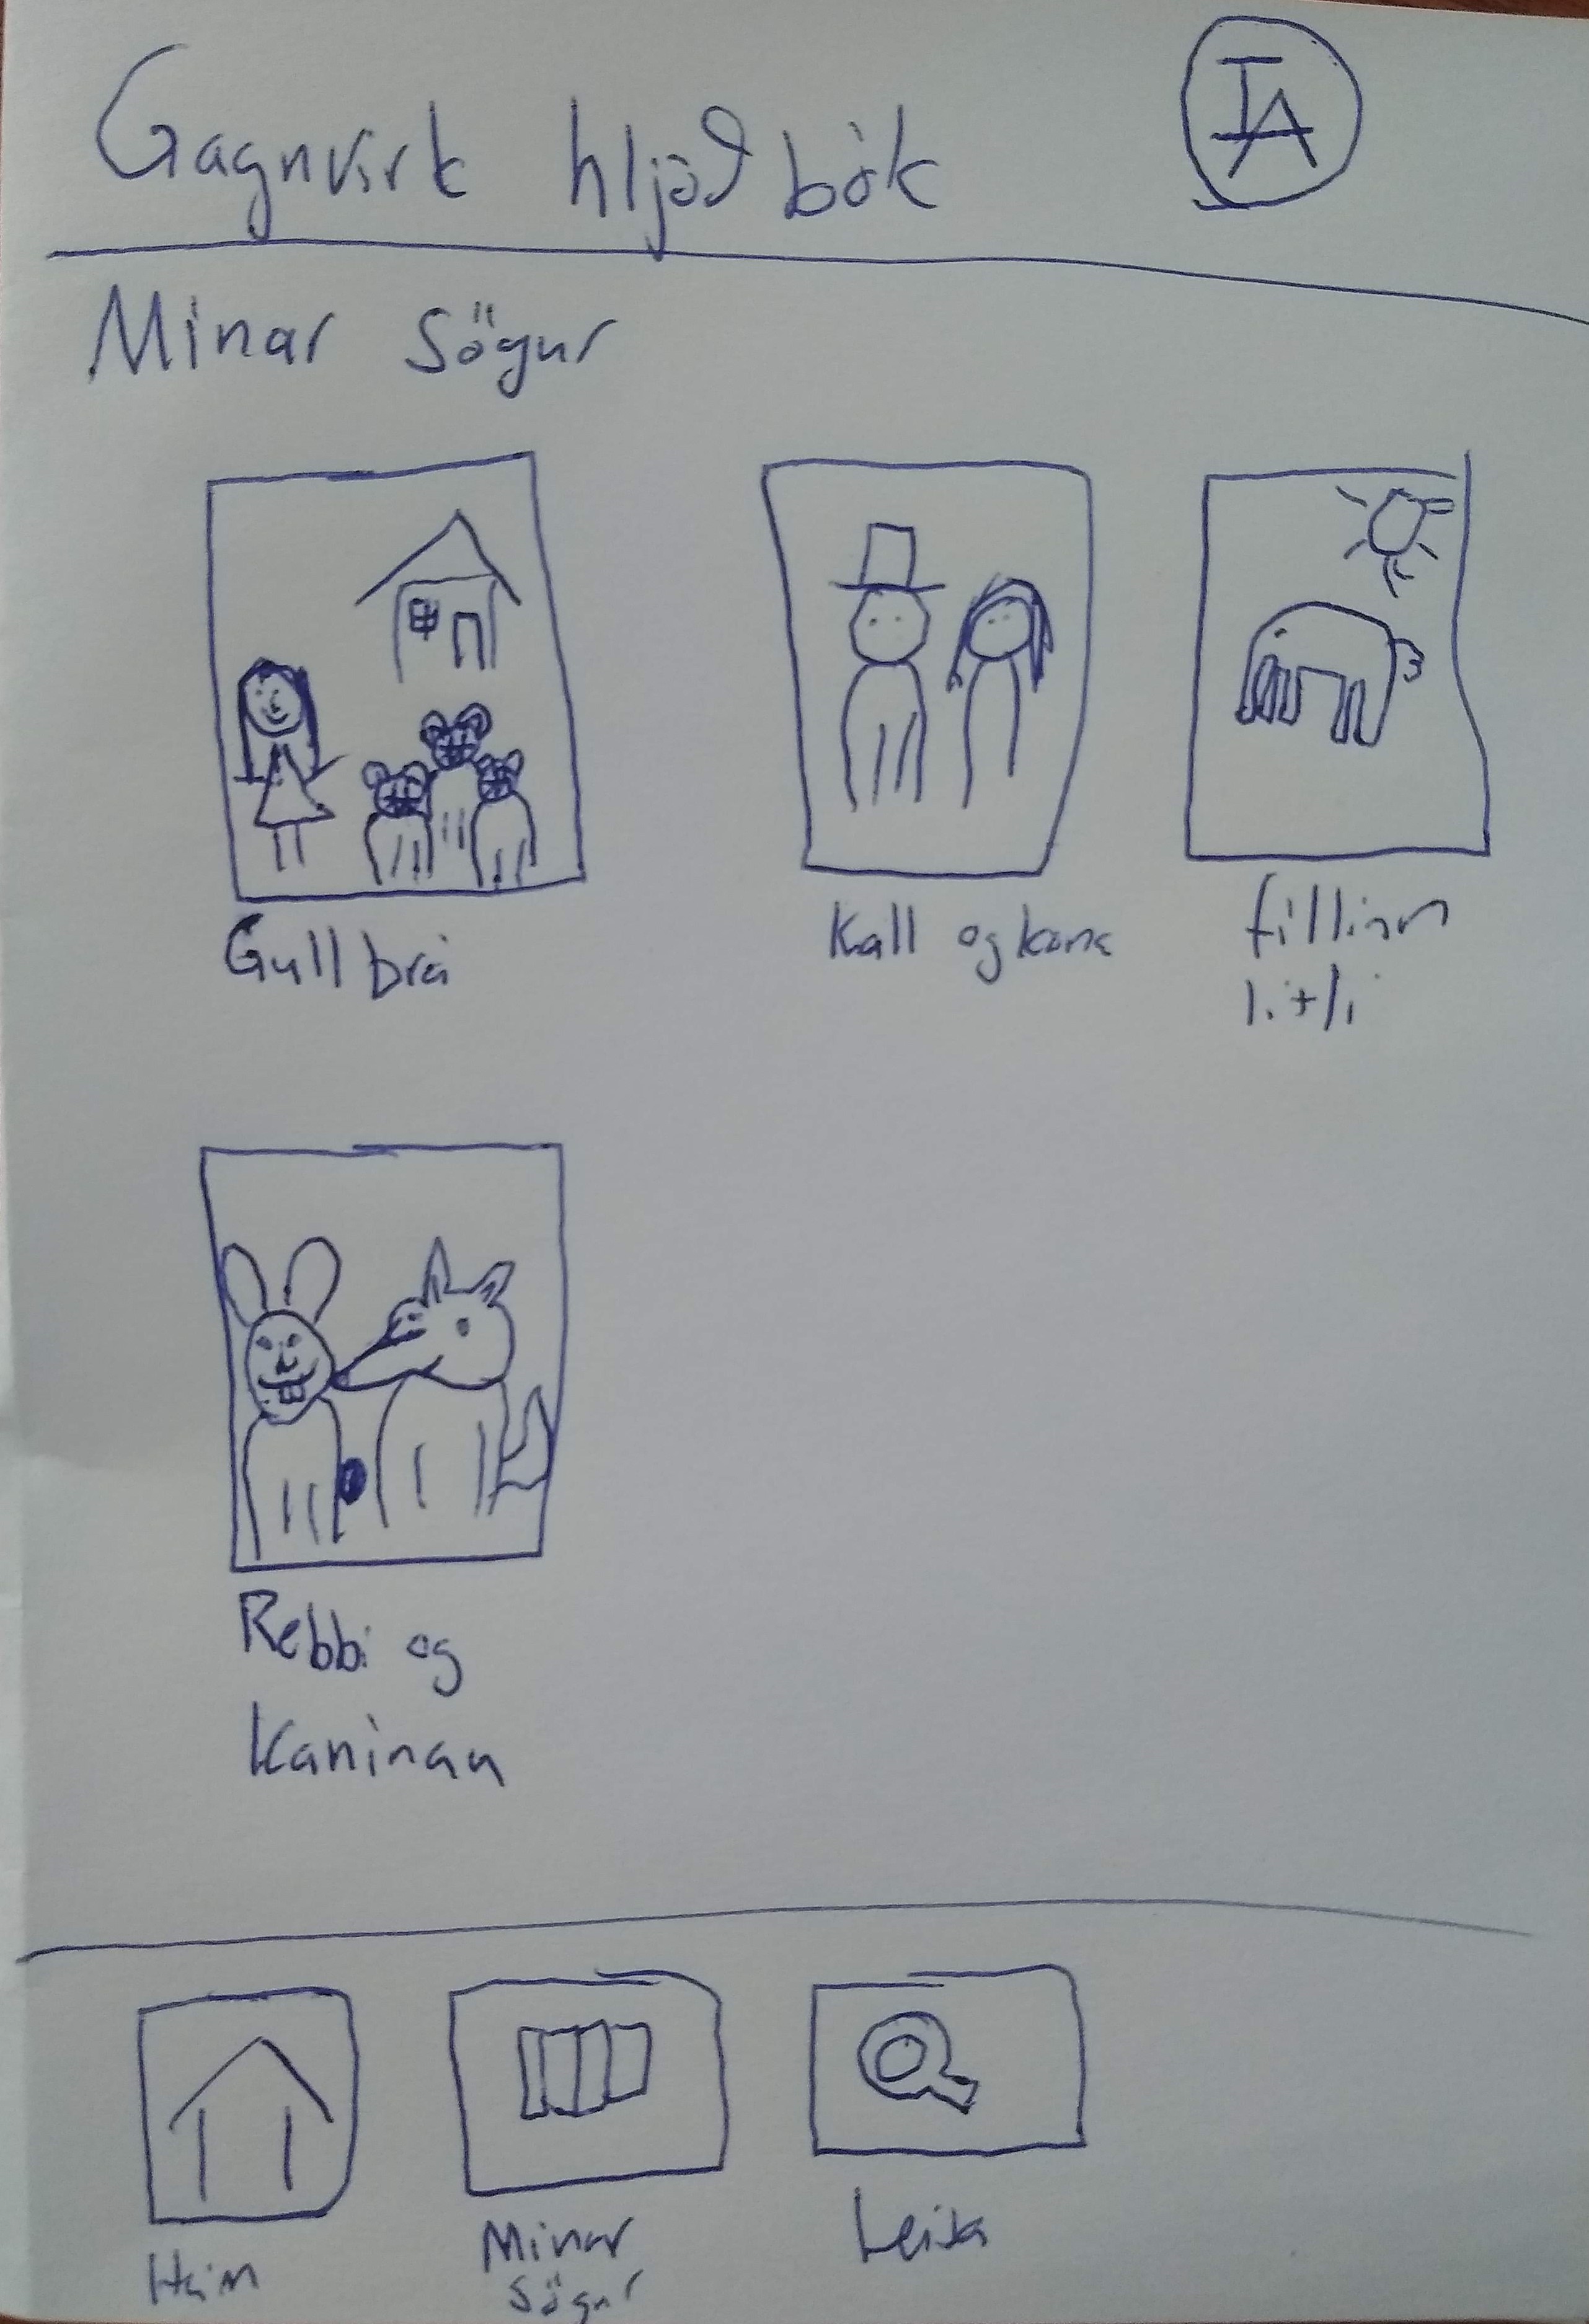 Gagnvirk hljóðbók
IA
Minar sögur
Gullbrá
Kall og kona
fillinn
litli
Rebbi og
Kaninan
Heim
Minar
sögur
Leita